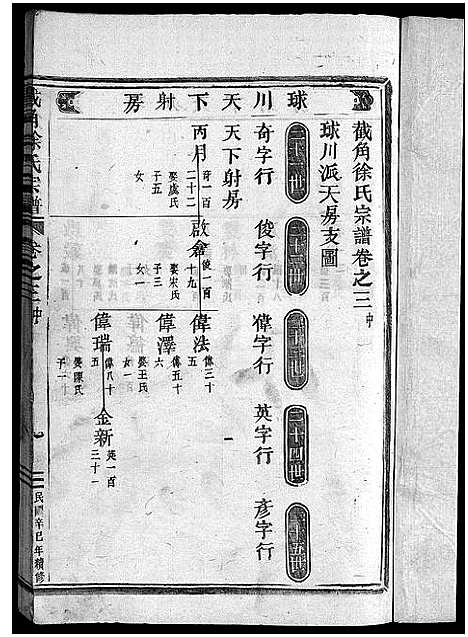 球川天下射房
截角徐氏宗譜卷之三中
球川派天房支圖
二十一世
二十二世
二十三世
二十四世
二十五世
奇字行
俊字行
偉字行
英字行
彥字行
天下射房
丙月
奇一百二十二
娶虞氏
子五
女
啟倉
俊一百十九
娶宋氏
子三
女一
偉法
偉三十五
偉澤
偉五十六
娶王氏
女一
偉瑞
偉八十五
娶陳氏
子一
金新
英一百三十一
截角徐氏宗譜
卷之三中
民國辛巳年續修